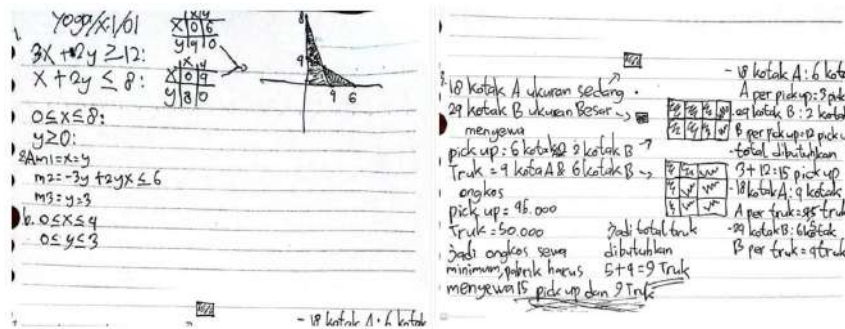 Yoga/X1/01
1.
3x + 2y ≥ 12:
x y
x 0 6
y 9 0
x + 2y ≤ 8:
x y
x 0 9
y 8 0
8
9
9 6
0 ≤ x ≤ 8:
y ≥ 0:
m1 = x = y
m2 = -3y + 2yx ≤ 6
m3 = y = 3
b. 0 ≤ x ≤ 4
0 ≤ y ≤ 3
- 18 kotak A : 6 kotak
18 kotak A ukuran sedang
29 kotak B ukuran Besar
menyewa
pick up : 6 kotak 2 kotak B
Truk = 9 kota A & 6 kotak B
ongkos
pick up = 95.000
Truk = 50.000
Jadi ongkos sewa
minimum, pabrik harus
menyewa 15 pick up dan 9 Truk
Jadi total truk
dibutuhkan
5 + 9 = 9 Truk
- 18 kotak A : 6 kota
A per pickup = 3 pick
- 29 kotak B : 2 kotak
B per pickup = 12 pick u
- total dibutuhkan
3 + 12 : 15 pick up
- 18 kotak A : 9 kotak
A per truk = truk
- 29 kotak B : 6 kotak
B per truk = 9 truk